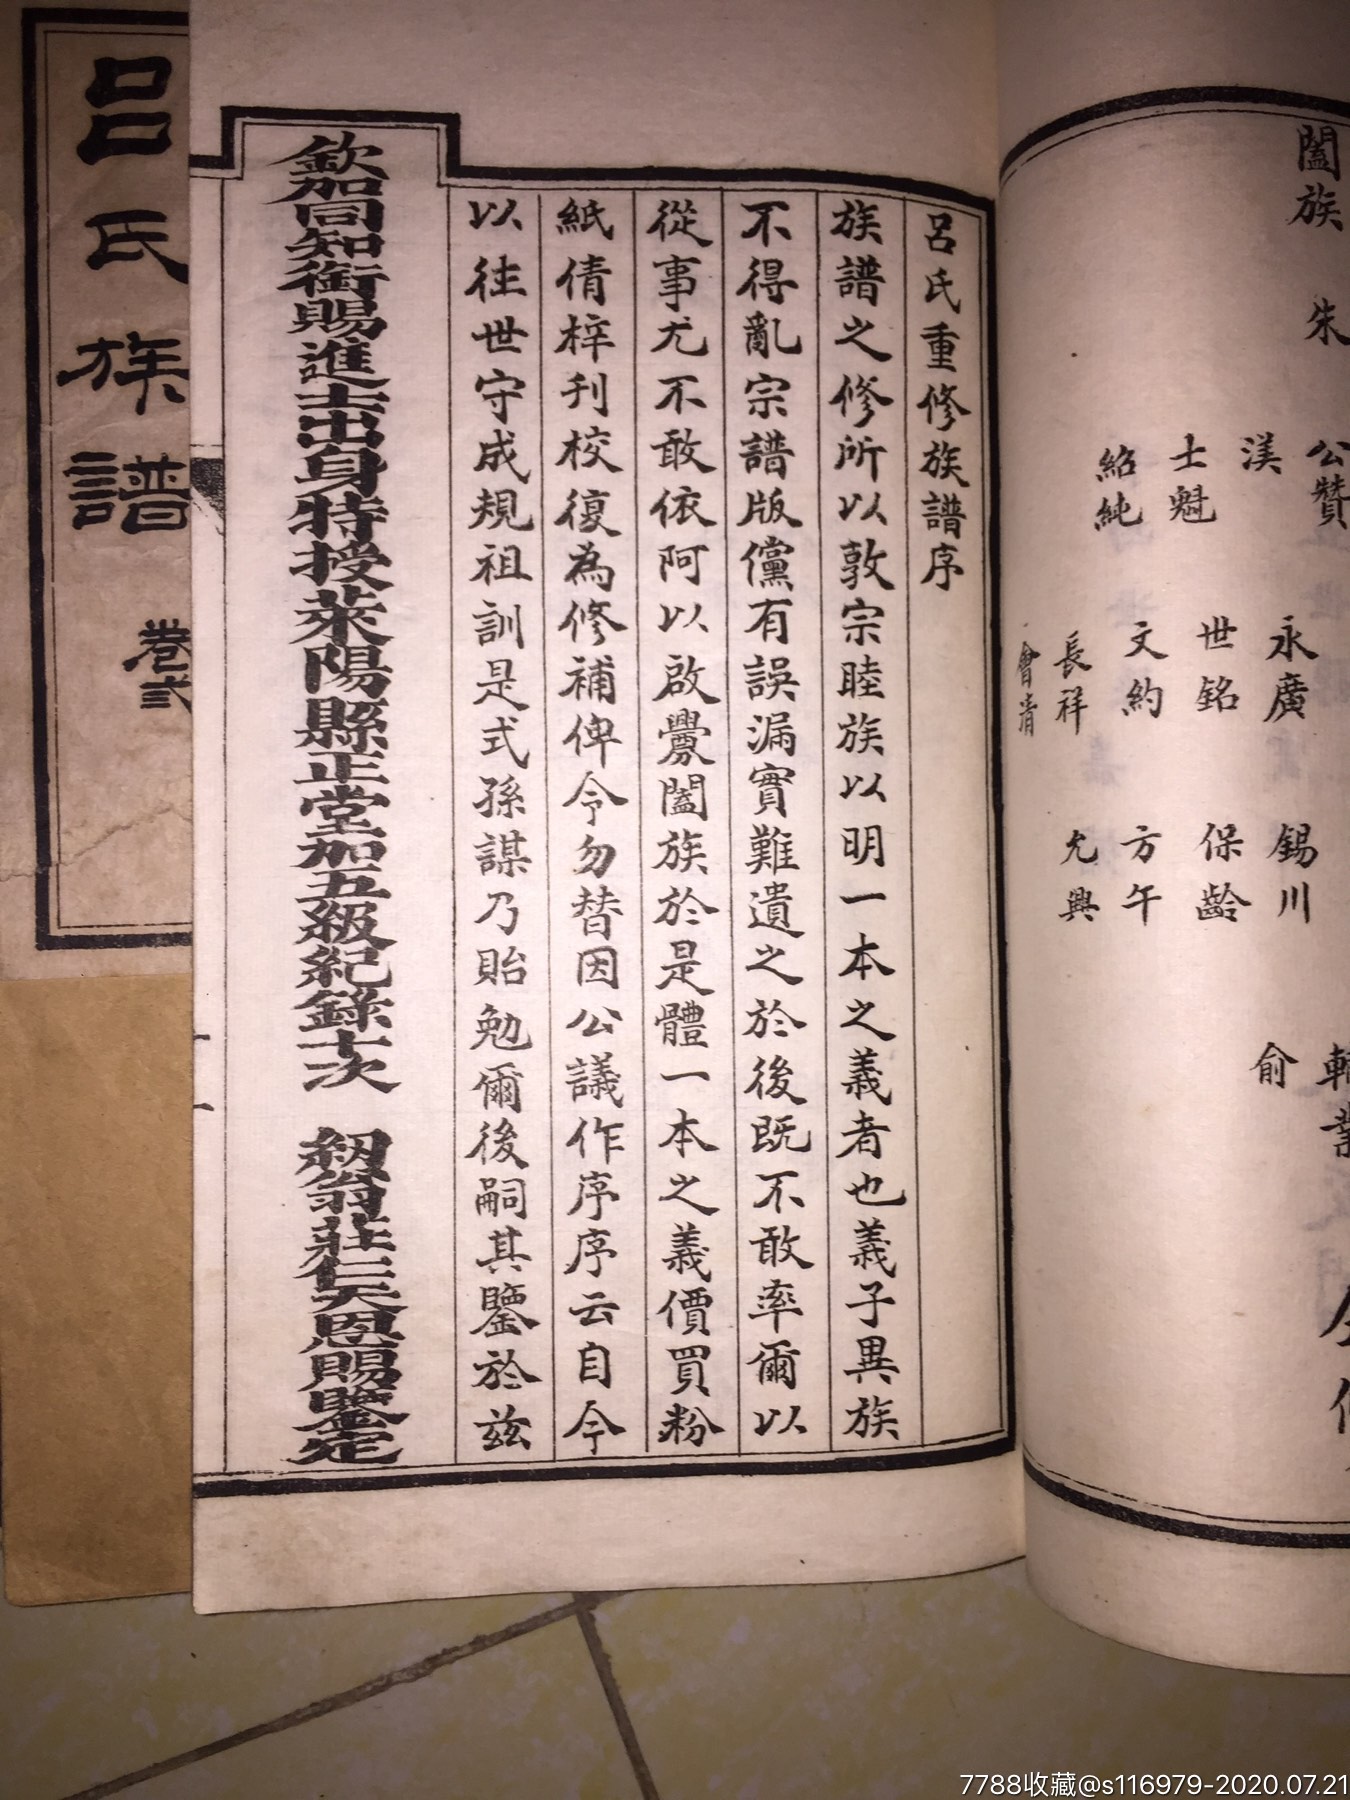 闔族
朱
公贊
渼
士魁
紹純
永廣
世銘
文約
長祥
會清
錫川
保齡
方午
允興
俞
呂氏重修族譜序
族譜之修所以敦宗睦族以明一本之義者也義子異族
不得亂宗譜版儻有誤漏實難遺之於後既不敢率爾以
從事尤不敢依阿以啟釁闔族於是體一本之義價買粉
紙倩梓刋校復為修補俾令勿替因公議作序序云自今
以往世守成規祖訓是式孫謀乃貽勉爾後嗣其鑒於兹
欽加同知銜賜進士出身特授萊陽縣正堂加五級紀錄十次 翁莊仁天恩賜鑒定
呂氏族譜 卷弍
7788收藏@s116979-2020.07.21